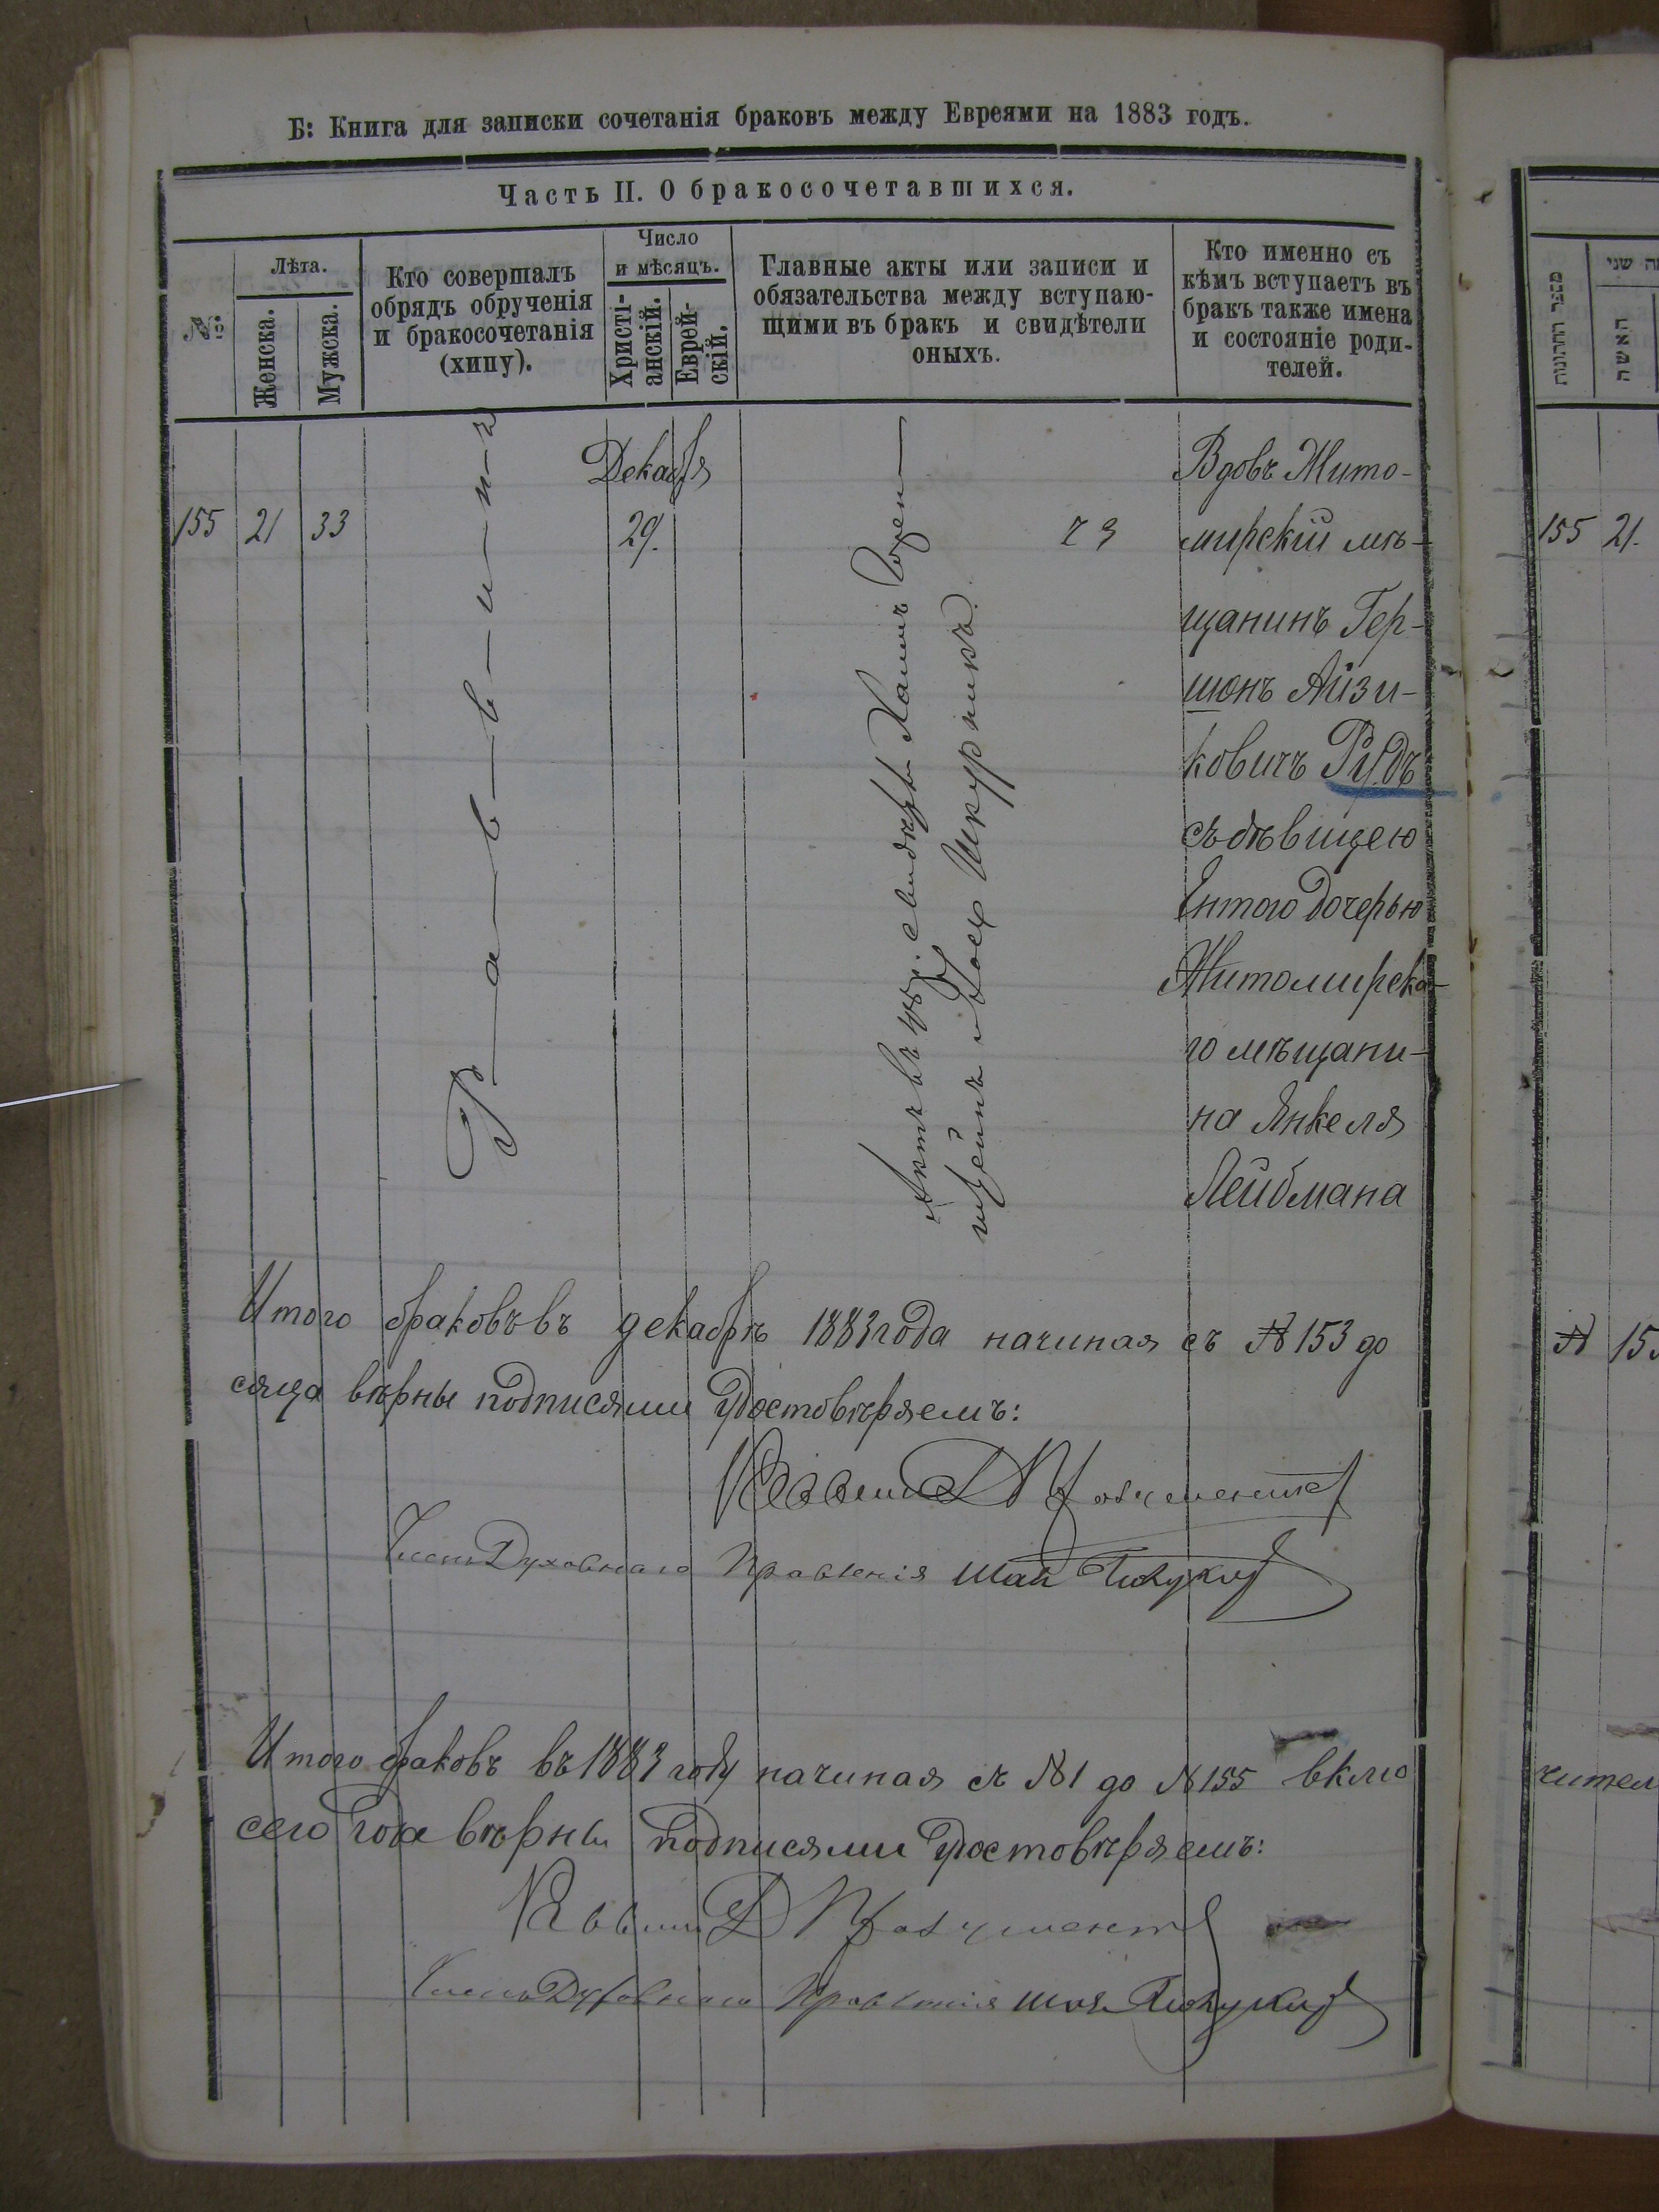 Б: Книга для записки сочетанія браковъ между Евреями на 1883 годъ.
Часть II. О бракосочетавшихся.
№:
Лѣта.
Женска.
Мужска.
Кто совершалъ
обрядъ обрученія
и бракосочетанія
(хипу).
Число
и мѣсяцъ.
Христі-
анскій.
Еврей-
скій.
Главные акты или записи и
обязательства между вступаю-
щими въ бракъ и свидѣтели
оныхъ.
Кто именно съ
кѣмъ вступаетъ въ
бракъ также имена
и состояніе роди-
телей.
155 21 33
Р-а-в-в-и-н-ъ
Декабря
29.
Актъ въ 48 р. свидѣтели Хаимъ
и Іось Шкурникъ.
Вдовъ Жито-
мирскій мѣ-
щанинъ Гер-
шонъ Айзи-
ковичъ Рудъ
съ дѣвицею
Ентою дочерью
Житомирска-
го мѣщани-
на Янкеля
Лейбмана
Итого браковъ въ декабрѣ 1883 года начиная съ № 153 до
сяца вѣрны подписями удостовѣряемъ:
Раввинъ
Членъ Духовнаго Правленія
Итого браковъ въ 1883 году начиная съ №1 до №155 вклю
сего года вѣрны подписями удостовѣряемъ:
Раввинъ
Членъ Духовнаго Правленія
מספר החתונות
שני
האשה
155 21.
№ 15
чител